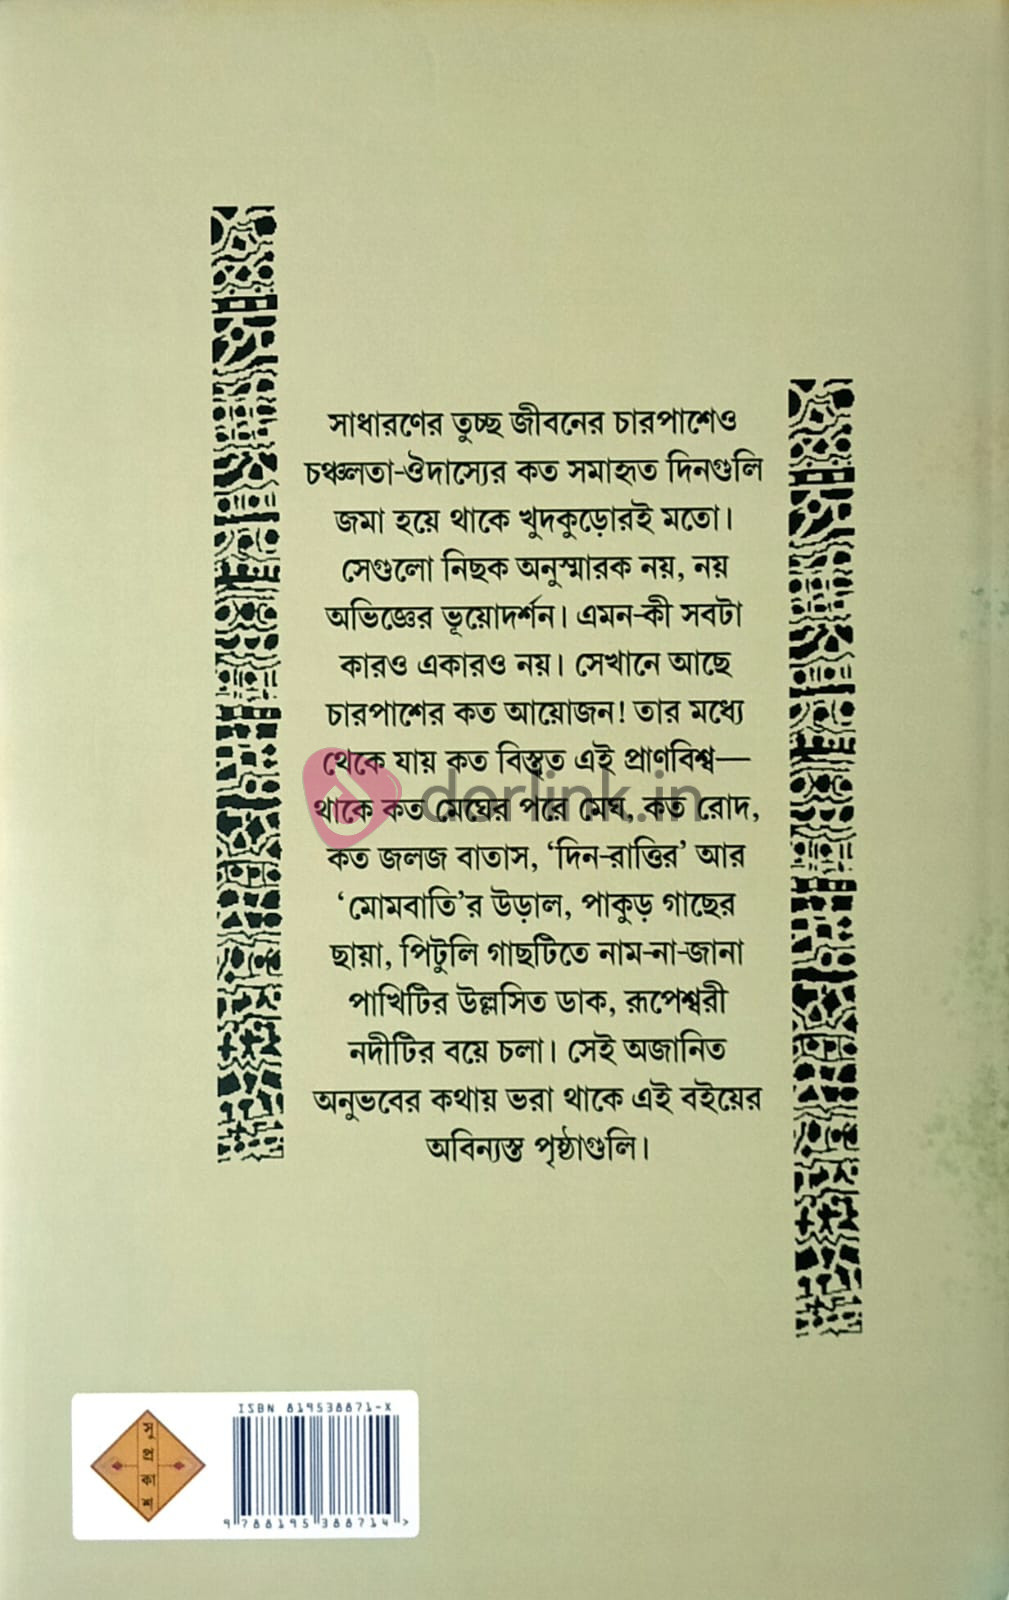 সাধারণের তুচ্ছ জীবনের চারপাশেও
চঞ্চলতা-ঔদাস্যের কত সমাহৃত দিনগুলি
জমা হয়ে থাকে খুদকুড়োরই মতো।
সেগুলো নিছক অনুস্মারক নয়, নয়
অভিজ্ঞের ভূয়োদর্শন। এমন-কী সবটা
কারও একারও নয়। সেখানে আছে
চারপাশের কত আয়োজন! তার মধ্যে
থেকে যায় কত বিস্তৃত এই প্রাণবিশ্ব—
থাকে কত মেঘের পরে মেঘ, কত রোদ,
কত জলজ বাতাস, ‘দিন-রাত্তির’ আর
‘মোমবাতি’র উড়াল, পাকুড় গাছের
ছায়া, পিটুলি গাছটিতে নাম-না-জানা
পাখিটির উল্লসিত ডাক, রূপেশ্বরী
নদীটির বয়ে চলা। সেই অজানিত
অনুভবের কথায় ভরা থাকে এই বইয়ের
অবিন্যস্ত পৃষ্ঠাগুলি।
derlink.in
ISBN 819538871-X
সুপ্রকাশ
9 788195 388714 >